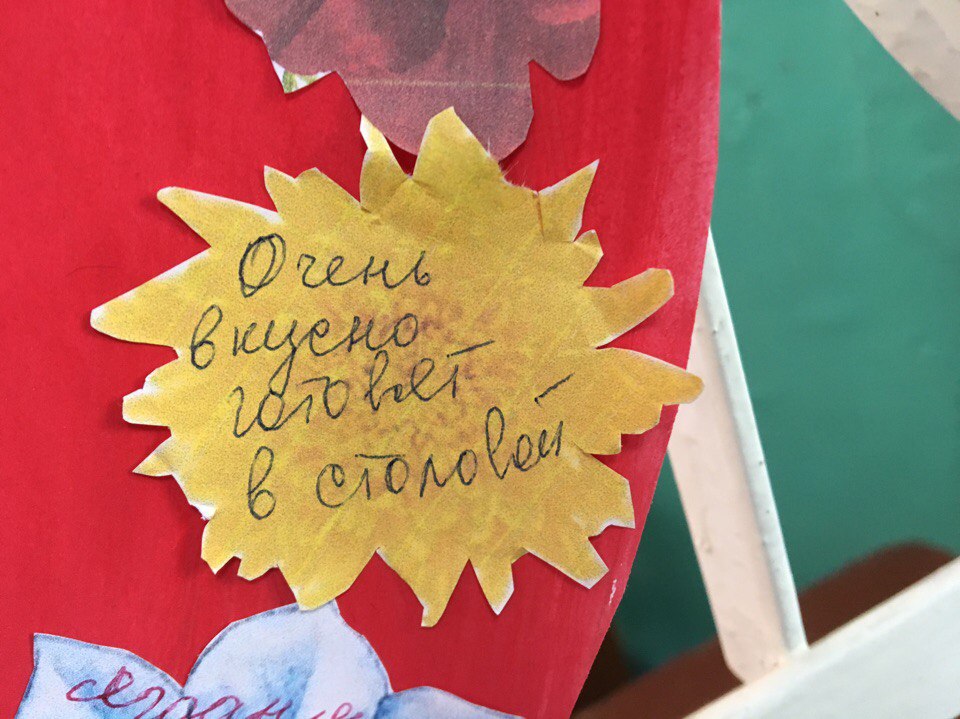 Очень
вкусно
готовят
в столовой